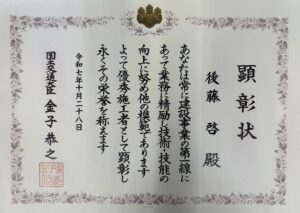 顕彰状
後藤 啓 殿
あなたは常に建設事業の第一線に
あって業務に精励し技術・技能の
向上に努め他の模範であります
よって優秀施工者として顕彰し
永くその栄誉を称えます
令和七年十月二十八日
国土交通大臣 金子 恭之